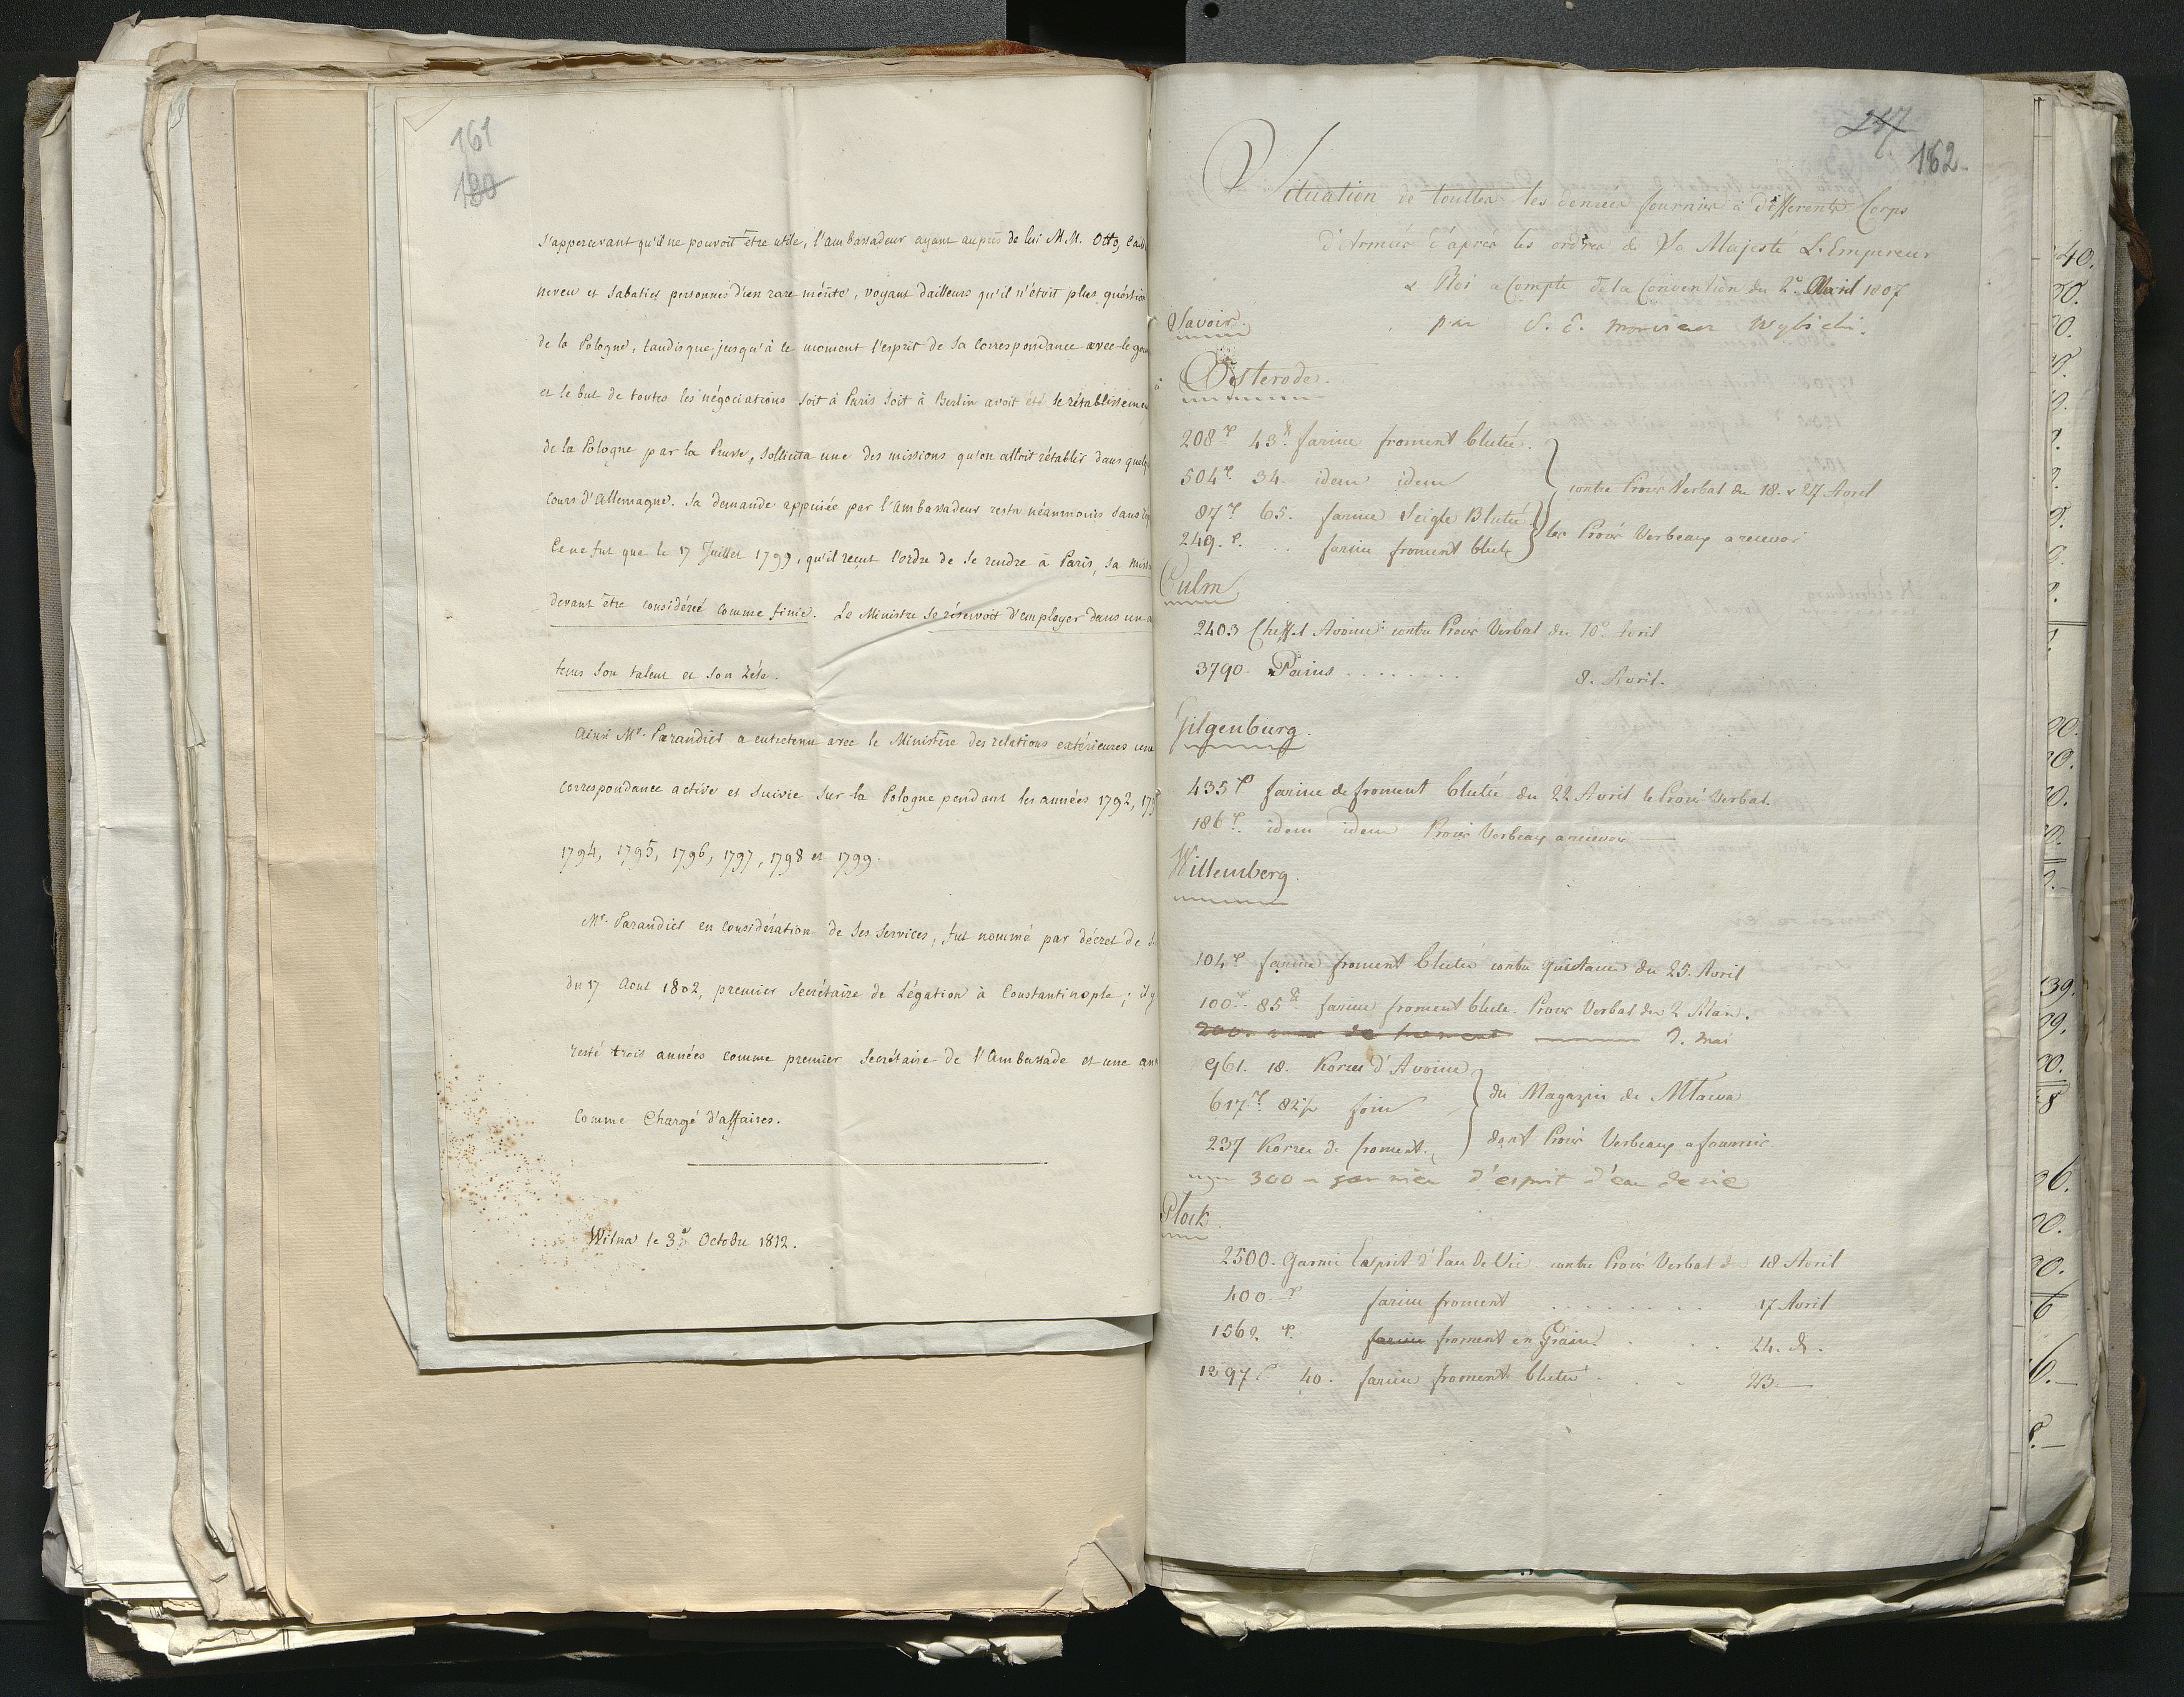 161
130
s'appercevant qu'il ne pouvoit être utile, l'ambassadeur ayant auprès de lui M.M. Otto, Cail
neveu et Sabatier personnes d'un rare mérite, voyant dailleurs qu'il n'étoit plus question
de la Pologne, tandisque jusqu'à ce moment l'esprit de sa Correspondance avec le gou
et le but de toutes les négociations soit à Paris soit à Berlin avoit été le rétablissemen
de la Pologne par la Prusse, sollicita une des missions qu'on alloit rétablir dans quelq
Cours d'Allemagne. Sa demande appuiée par l'Ambassadeur resta néanmoins sans
Ce ne fut que le 17 Juillet 1799, qu'il reçut l'ordre de se rendre à Paris, sa miss
devant être considérée comme finie. Le Ministre se réservoit d'employer dans un a
tems son talent et son zéle.
Ainsi Mr. Parandier a entretenu avec le Ministère des relations extérieures une
correspondance active et suivie sur la Pologne pendant les années 1792, 179
1794, 1795, 1796, 1797, 1798 et 1799.
Mr. Parandier en considération de ses services, fut nommé par décret de S
du 17 Aout 1802, premier Secrétaire de Légation à Constantinople; il y
resté trois années comme premier Secrétaire de l'Ambassade et une ann
comme Chargé d'affaires.
Wilna le 3e Octobre 1812.
217
162.
Situation de touttes les denrées fournies à differents Corps
d'Armées d'après les ordres de Sa Majesté L'Empereur
& Roi a Compte de la Convention du 2e Avril 1807
Savoir. par S. E. monsieur Wybicki.
à Osterode.
208 43 farine froment blutée.
504 34. idem idem
contre Procès Verbal du 18. & 27 Avril
87 65. farine Seigle Blutée
249. farine froment blutée
les Procès Verbeaux a recevoir
Culm
2403 Cheffel Avoine contre Procès Verbal du 10e Avril
3790. Pains ........ 8. Avril.
Gilgenburg.
435 farine de froment blutée du 22 Avril le Procès Verbal.
186 idem idem Procès Verbeaux a recevoir —
Willemberg
104 farine froment blutée contre quittance du 25. Avril
100. 85 farine froment blutée Procès Verbal du 2 Mai.
de froment —— 9. mai
961. 18. Korzec d'Avoine
617 82 foin
du Magazin de Mlawa
237 Korzec de froment.
dont Procès Verbeaux a fournir
300 garnier d'esprit d'eau de vie
Plock
2500. Garnie Esprit d'Eau de Vie contre Procès Verbal du 18 Avril
400. farine froment ........ 17 Avril
1562. farine froment en Grain. 24. d.
1297 40. farine froment blutée 23 —